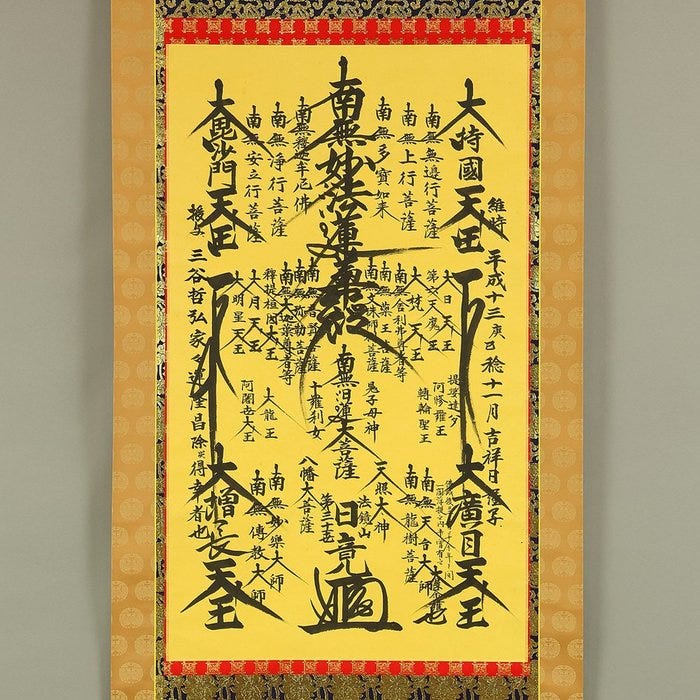 維時 平成十三
十一月 吉祥日
大持國天王
南無無邊行菩薩
南無上行菩薩
南無多寶如来
南無妙法蓮華経
南無釋迦牟尼佛
南無淨行菩薩
南無安立行菩薩
大毘沙門天王
大日天王
第六天魔王
大梵天王
南無舍利弗尊者等
南無薬王菩薩
南無文殊師利菩薩
南無普賢菩薩
南無弥勒菩薩
南無大迦葉尊者等
釋提桓因大王
大月天王
大明星天王
提婆達多
阿修羅王
轉輪聖王
鬼子母神
南無日蓮大菩薩
十羅刹女
大龍王
阿闍世大王
大廣目天王
南無天台大師
南無龍樹菩薩
天照大神
法鏡山
日竟
第三十五
八幡大菩薩
南無妙樂大師
南無傳教大師
大増長天王
授与 三谷哲弘家